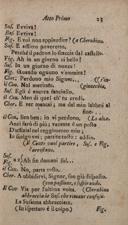 Atto Primo 23
Sus. Evviva!
Bas. Evviva!
Fig. E voi non applaudite? (a Cherubino.
Sus. È afflitto poveretto,
Perchè il padron lo scaccia dal castello.
Fig. Ah in un giorno sì bello!
Sus. In un giorno di nozze!
Fig. Quando ognuno v'ammira!
Cher. Perdono mio Signor...
Il Con. Nol meritate.
Sus. Egli è ancora fanciullo.
Il Con. Men di quel che tu credi.
Cher. È ver mancai, ma dal mio labbro al
Il Con. Ben, ben; io vi perdono,
Anzi farò di più; vacante è un posto
D'uffizial nel reggimento mio;
Io scelgo voi; partite tosto: addio.
Il Conte vuol partire, Sus. e Fig.
Sus. Ah fin domani sol...
Il Con. No, parta tosto.
Cher. A ubbidirvi, Signor, son già disposto.
Il Con. Via per l'ultima volta
La Susanna abbracciate.